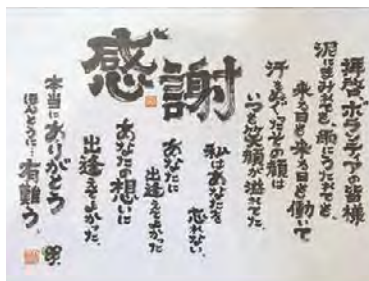 感謝
拝啓ボランティアの皆様
泥にまみれても、雨にうたれても、
来る日も来る日も働いて
汗をぬぐったその顔は
いつも笑顔が溢れてた。
私はあなたを
忘れない。
あなたに
出逢えてよかった
あなたの想いに
出逢えてよかった。
本当にありがとう
ほんとうに…有難う。